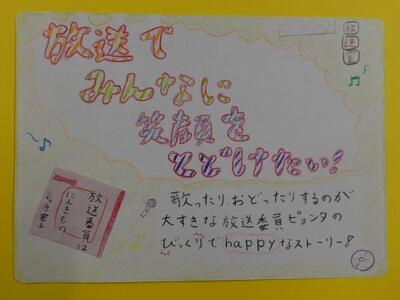 放送で
みんなに
笑顔を
とどけたい!
放
送
室
放送委員は
にんきもの
歌ったり、おどったりするのが
大すきな放送委員ピョンタの
びっくりでhappyなストーリー!!